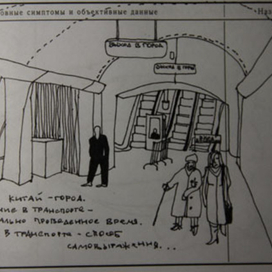 бные симптомы и объективные данные
Наз
ВЫХОД В ГОРОД
КИТАЙ-ГОРОД.
НИЕ В ТРАНСПОРТЕ -
АЛЬНО ПРОВЕДЕННОЕ ВРЕМЯ.
В ТРАНСПОРТЕ - СПОСОБ
САМОВЫРАЖЕНИЯ...